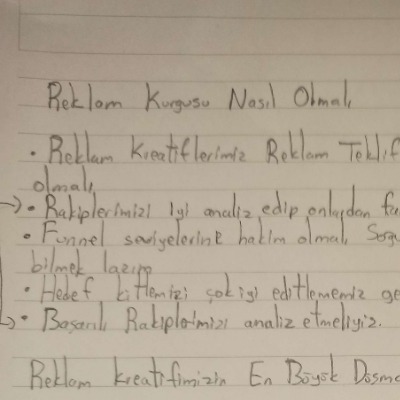 Reklam Kurgusu Nasıl Olmalı
• Reklam Kreatiflerimiz Reklam Teklif
olmalı,
→ • Rakiplerimizi iyi analiz edip onlardan
• Funnel seviyelerine hakim olmalı,
bilmek lazım
• Hedef kitlemizi çok iyi editlememiz ge
→ • Başarılı Rakiplerimizi analiz etmeliyiz.
Reklam kreatifimizin En Böyök Dösma